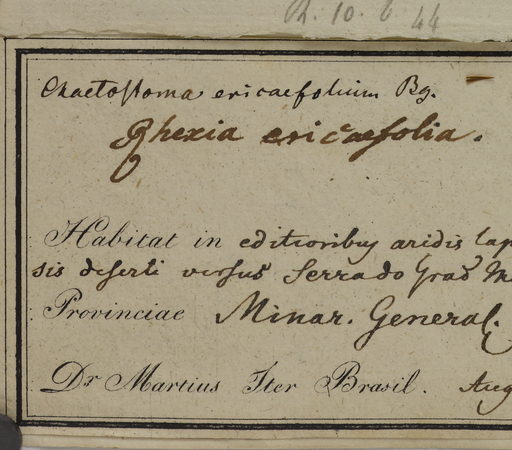 Chaetostoma ericaefolium Bg.
Rhexia ericaefolia.
Habitat in editioribus aridis lap
sis deserti versus Serra do Graõ M
Provinciae Minar. General.
Dr Martius Iter Brasil. Aug